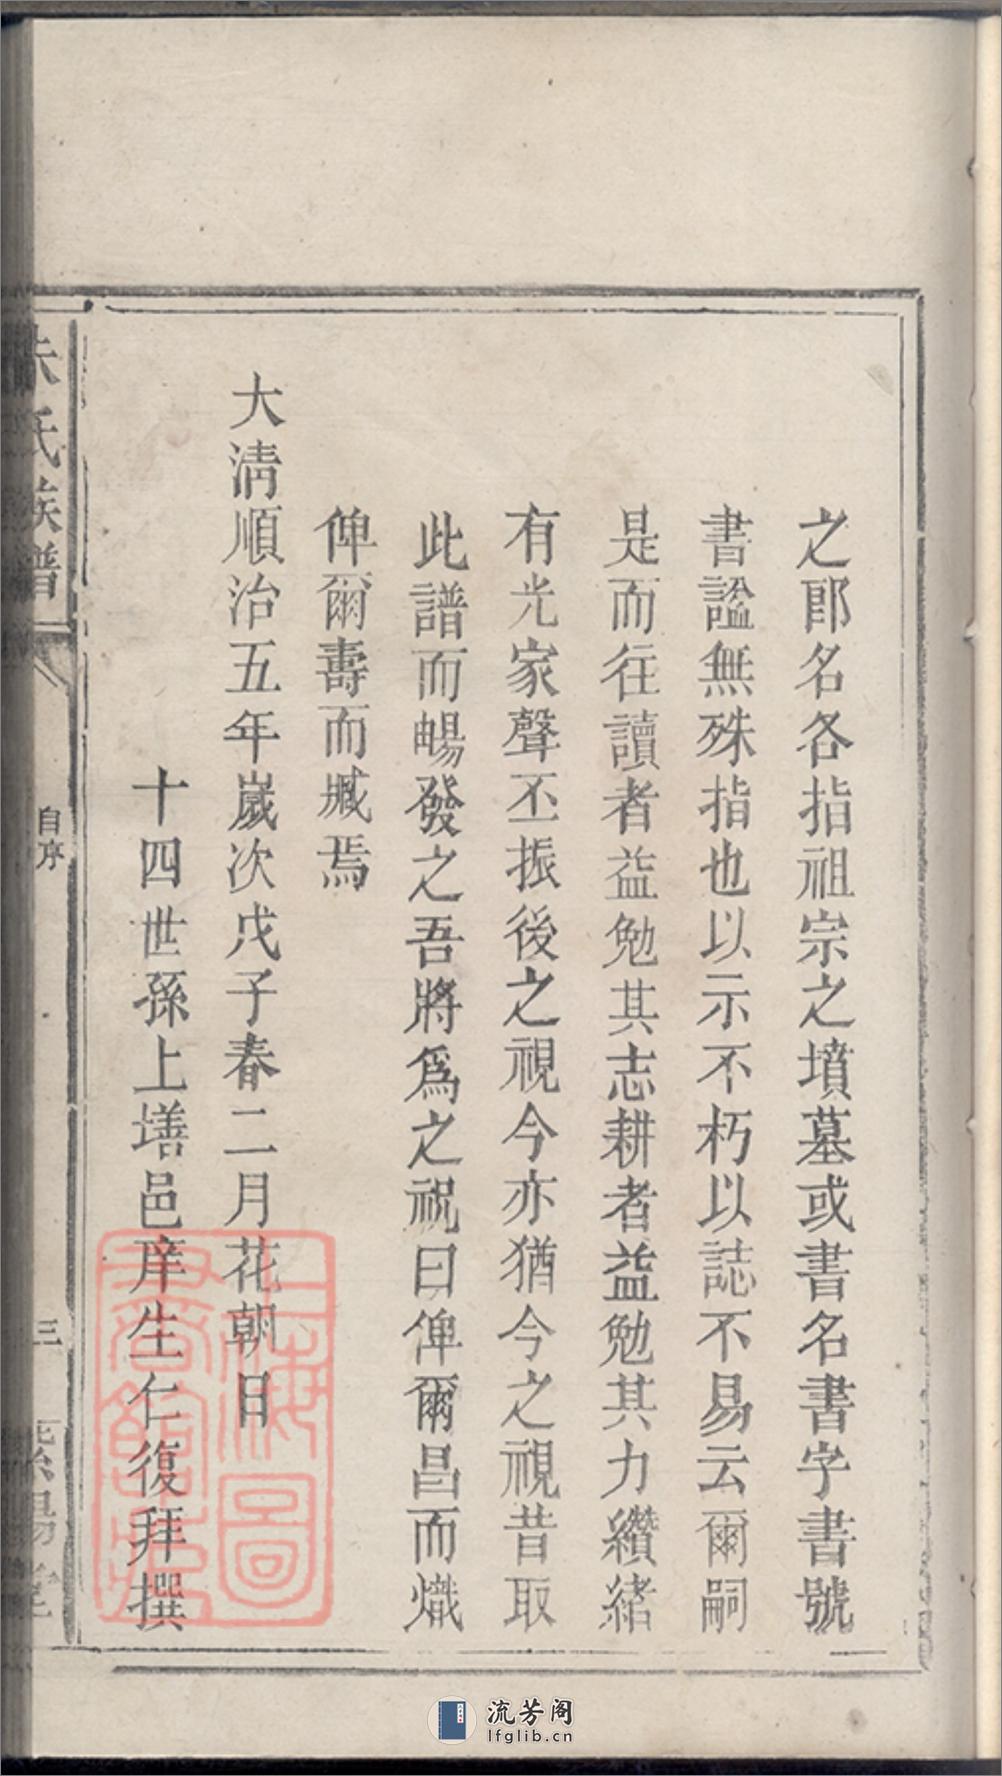 之郎名各指祖宗之墳墓或書名書字書號
書諡無殊指也以示不朽以誌不易云爾嗣
是而往讀者益勉其志耕者益勉其力纘緒
有光家聲丕振後之視今亦猶今之視昔取
此譜而暢發之吾將爲之祝曰俾爾昌而熾
俾爾壽而臧焉
大清順治五年歲次戊子春二月花朝日
十四世孫上墡邑庠生仁復拜撰
朱氏族譜
自序
三
紫陽堂
上海圖書館藏
流芳阁
lfglib.cn